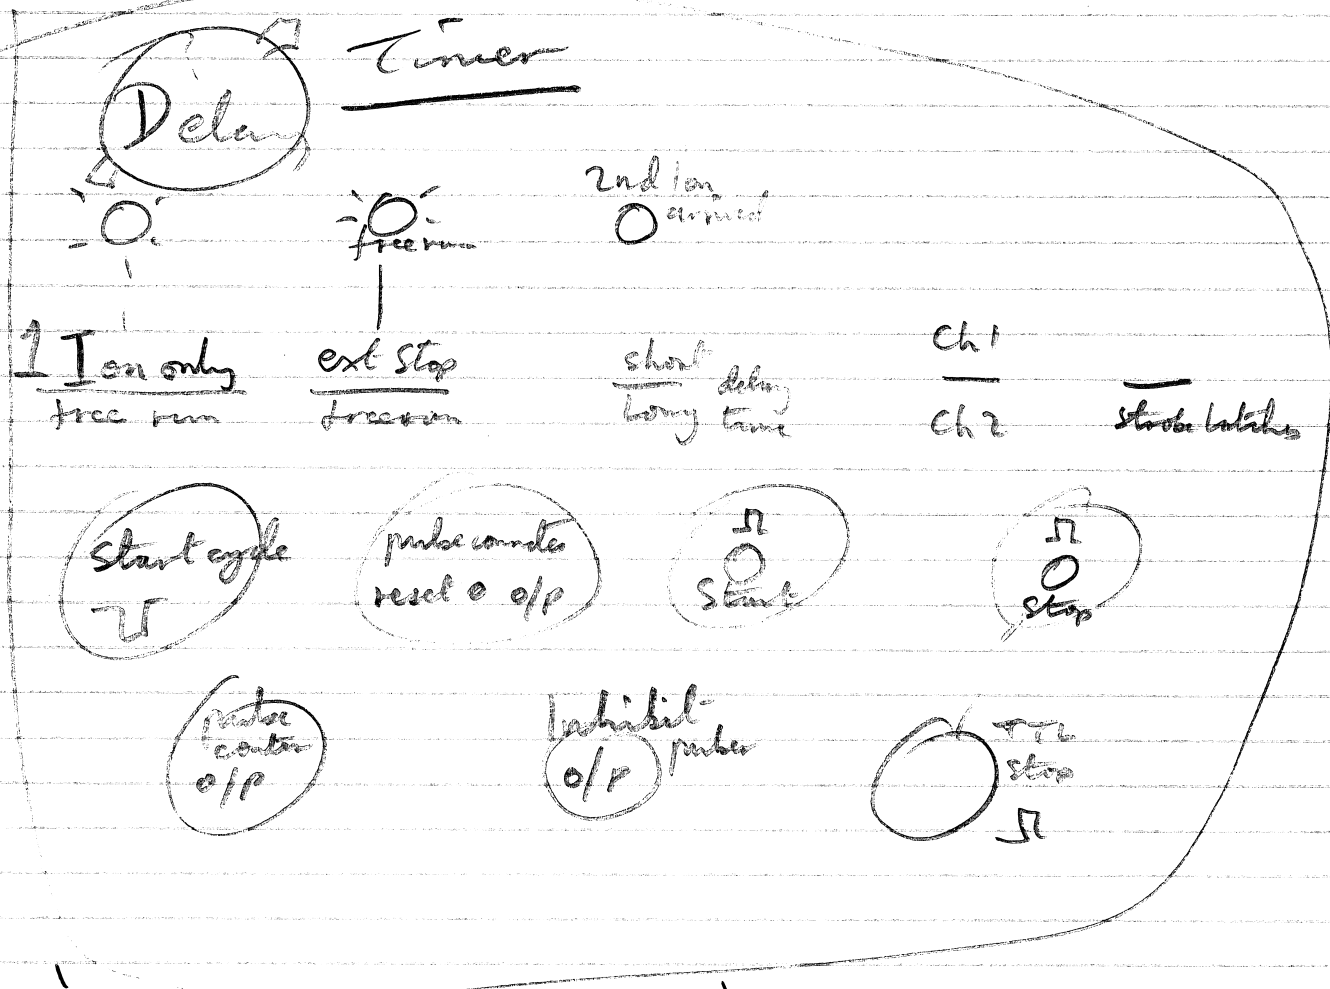 Timer
Delay
2nd ion
arrived
freerun
1 Ion only
free run
ext stop
freerun
short
long
delay
time
Ch 1
Ch 2
strobe latches
start cycle
pulse counter
reset o o/p
Start
Stop
pulse
counter
o/p
Inhibit
pulses
o/p
TTL
stop